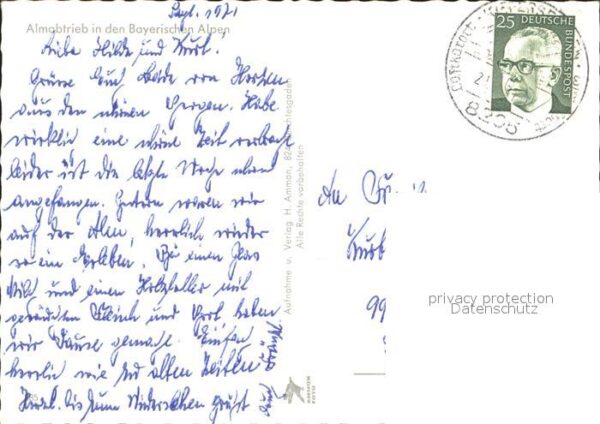 Sept. 1971
Almabtrieb in den Bayerischen Alpen
Liebe Hilde und Kurt.
Grüsse Euch Beide von Herzen
aus den schönen Bergen. Habe
wirklich eine schöne Zeit verbracht
leider ist die letzte Woche schon
angefangen. Gestern waren wir
auf der Alm, herrlich wieder
so ein Erleben. Bei einem Glas
Milch und einen Holzteller mit
geräuchten Fleisch und Brot haben
wir Pause gemacht. Einfach
herrlich wie zu alten Zeiten
Bis zum Wiedersehen grüßt
Euch
Aufnahme u. Verlag H. Amman, 82 Berchtesgaden
Alle Rechte vorbehalten
An
Kurt
99
25
DEUTSCHE
BUNDESPOST
Luftkurort
KIEFERSFELDEN
8205
privacy protection
Datenschutz